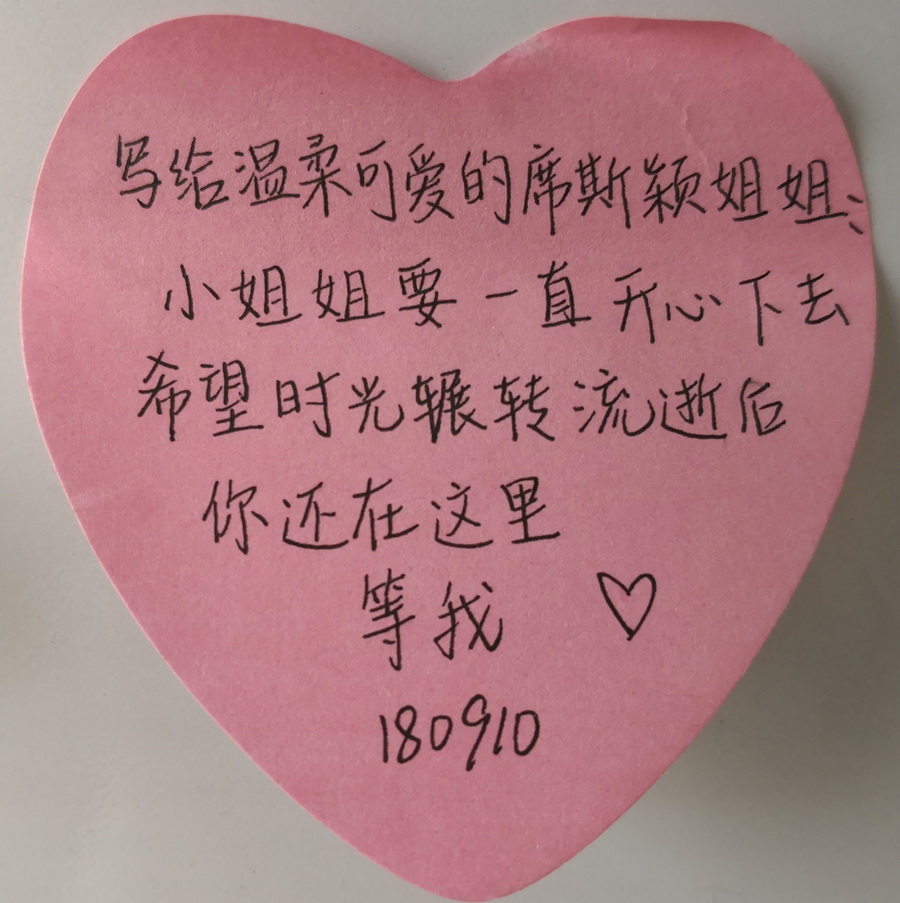 写给温柔可爱的席斯颖姐姐:
小姐姐要一直开心下去
希望时光辗转流逝后
你还在这里
等我 ♡
180910